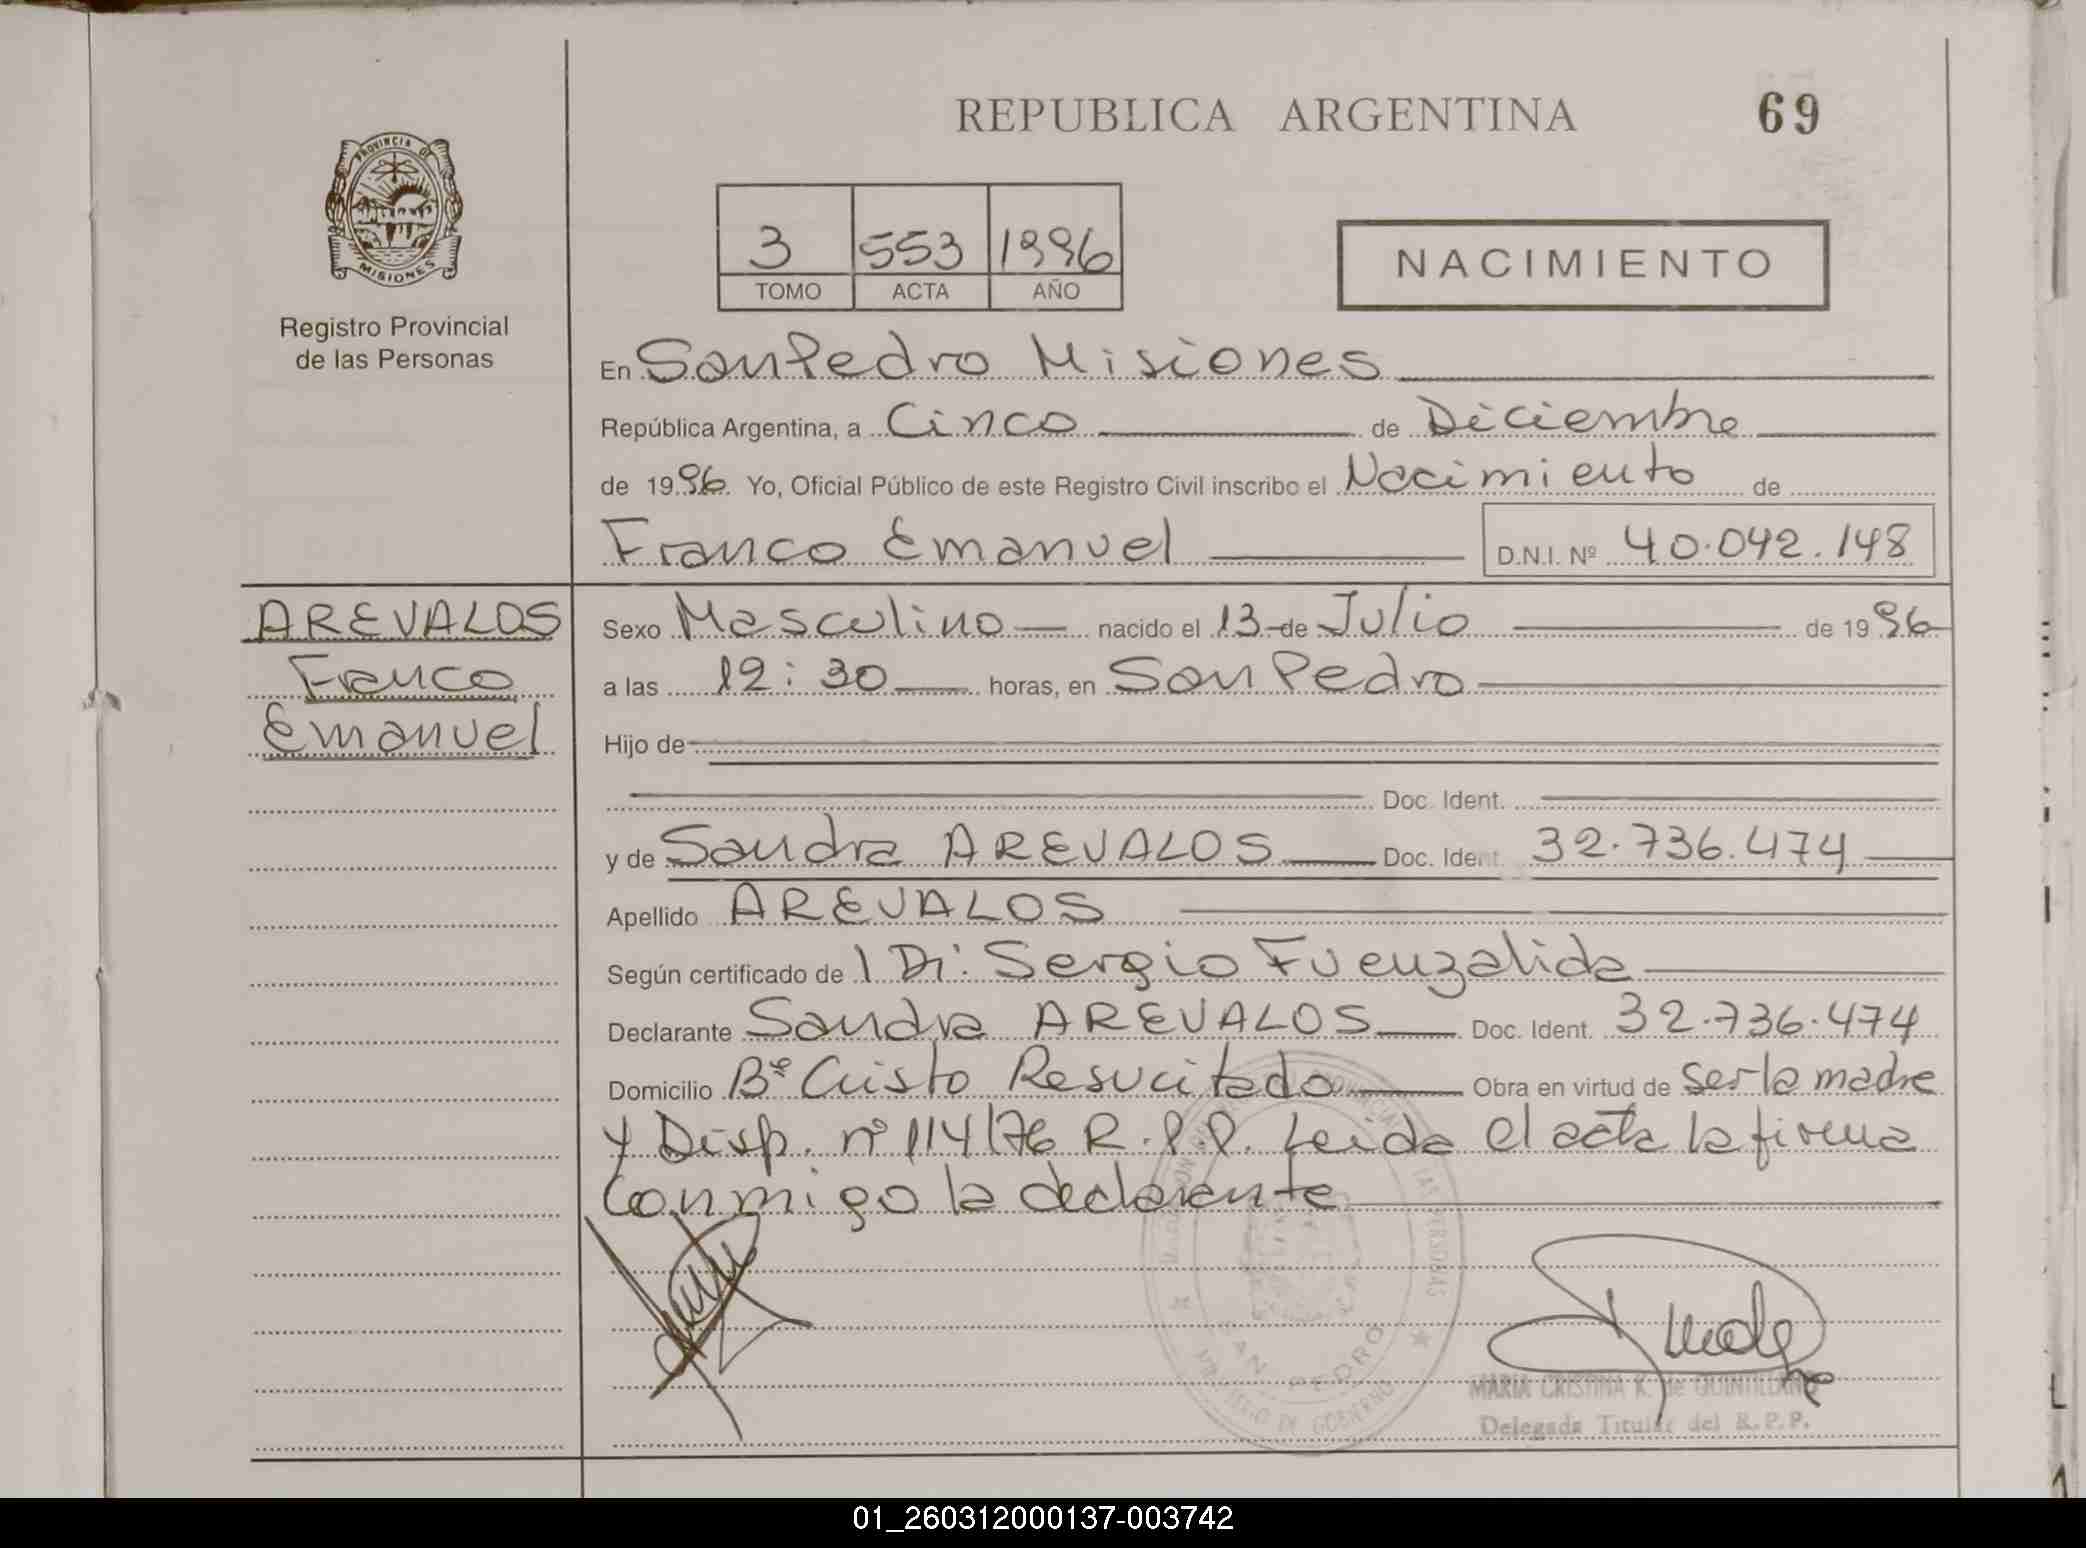 REPUBLICA ARGENTINA
69
PROVINCIA DE
MISIONES
Registro Provincial
de las Personas
3 553 1996
TOMO ACTA AÑO
NACIMIENTO
En San Pedro Misiones
República Argentina, a Cinco de Diciembre
de 1996 Yo, Oficial Público de este Registro Civil inscribo el Nacimiento de
Franco Emanuel D.N.I. Nº 40.042.148
AREVALOS
Franco
Emanuel
Sexo Masculino nacido el 13 de Julio de 1996
a las 12:30 horas, en San Pedro
Hijo de
Doc. Ident.
y de Sandra AREVALOS Doc. Ident. 32.736.474
Apellido AREVALOS
Según certificado de Dr. Sergio Fuenzalida
Declarante Sandra AREVALOS Doc. Ident. 32.736.474
Domicilio Bº Cristo Resucitado Obra en virtud de ser la madre
y Disp. nº 114/76 R.P.P. Leida el acta la firma
conmigo la declarante
SAN PEDRO
MINISTERIO DE GOBIERNO
MARIA CRISTINA K. de QUINTILLANO
Delegada Titular del R.P.P.
01_260312000137-003742